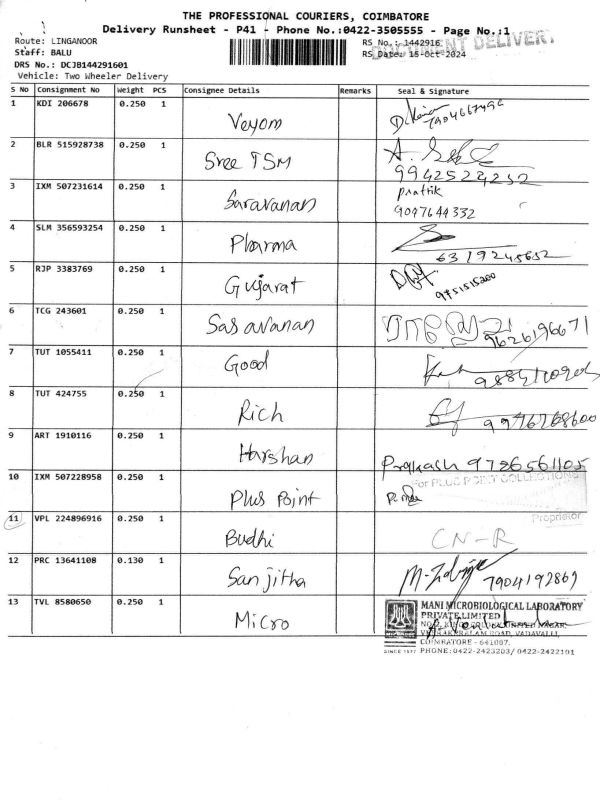 THE PROFESSIONAL COURIERS, COIMBATORE
Delivery Runsheet - P41 - Phone No.:0422-3505555 - Page No.:1
Route: LINGANOOR
RS No.: 1442916
DOCUMENT DELIVERY
Staff: BALU
RS Date: 15-Oct-2024
DRS No.: DCJB144291601
Vehicle: Two Wheeler Delivery
S No Consignment No Weight PCS Consignee Details Remarks Seal & Signature
1 KDI 206678 0.250 1 Veyom 7904667496
2 BLR 515928738 0.250 1 Sree TSM 9942524252
3 IXM 507231614 0.250 1 Saravanan prattik
9047644332
4 SLM 356593254 0.250 1 Pharma 6319245652
5 RJP 3383769 0.250 1 Gujarat 9951515200
6 TCG 243601 0.250 1 Sasavanan 9626196671
7 TUT 1055411 0.250 1 Good
8 TUT 424755 0.250 1 Rich 9976768600
9 ART 1910116 0.250 1 Harshan Prakash 9726561105
10 IXM 507228958 0.250 1 Plus Point For PLUS POINT COLLECTIONS
Proprietor
11 VPL 224896916 0.250 1 Budhi CN-R
12 PRC 13641108 0.130 1 Sanjitha 7904192869
13 TVL 8580650 0.250 1 Micro MANI MICROBIOLOGICAL LABORATORY
PRIVATE LIMITED
NAGAR,
VEERAKERALAM ROAD, VADAVALLI,
COIMBATORE - 641007.
SINCE 1977 PHONE: 0422-2423203/ 0422-2422101